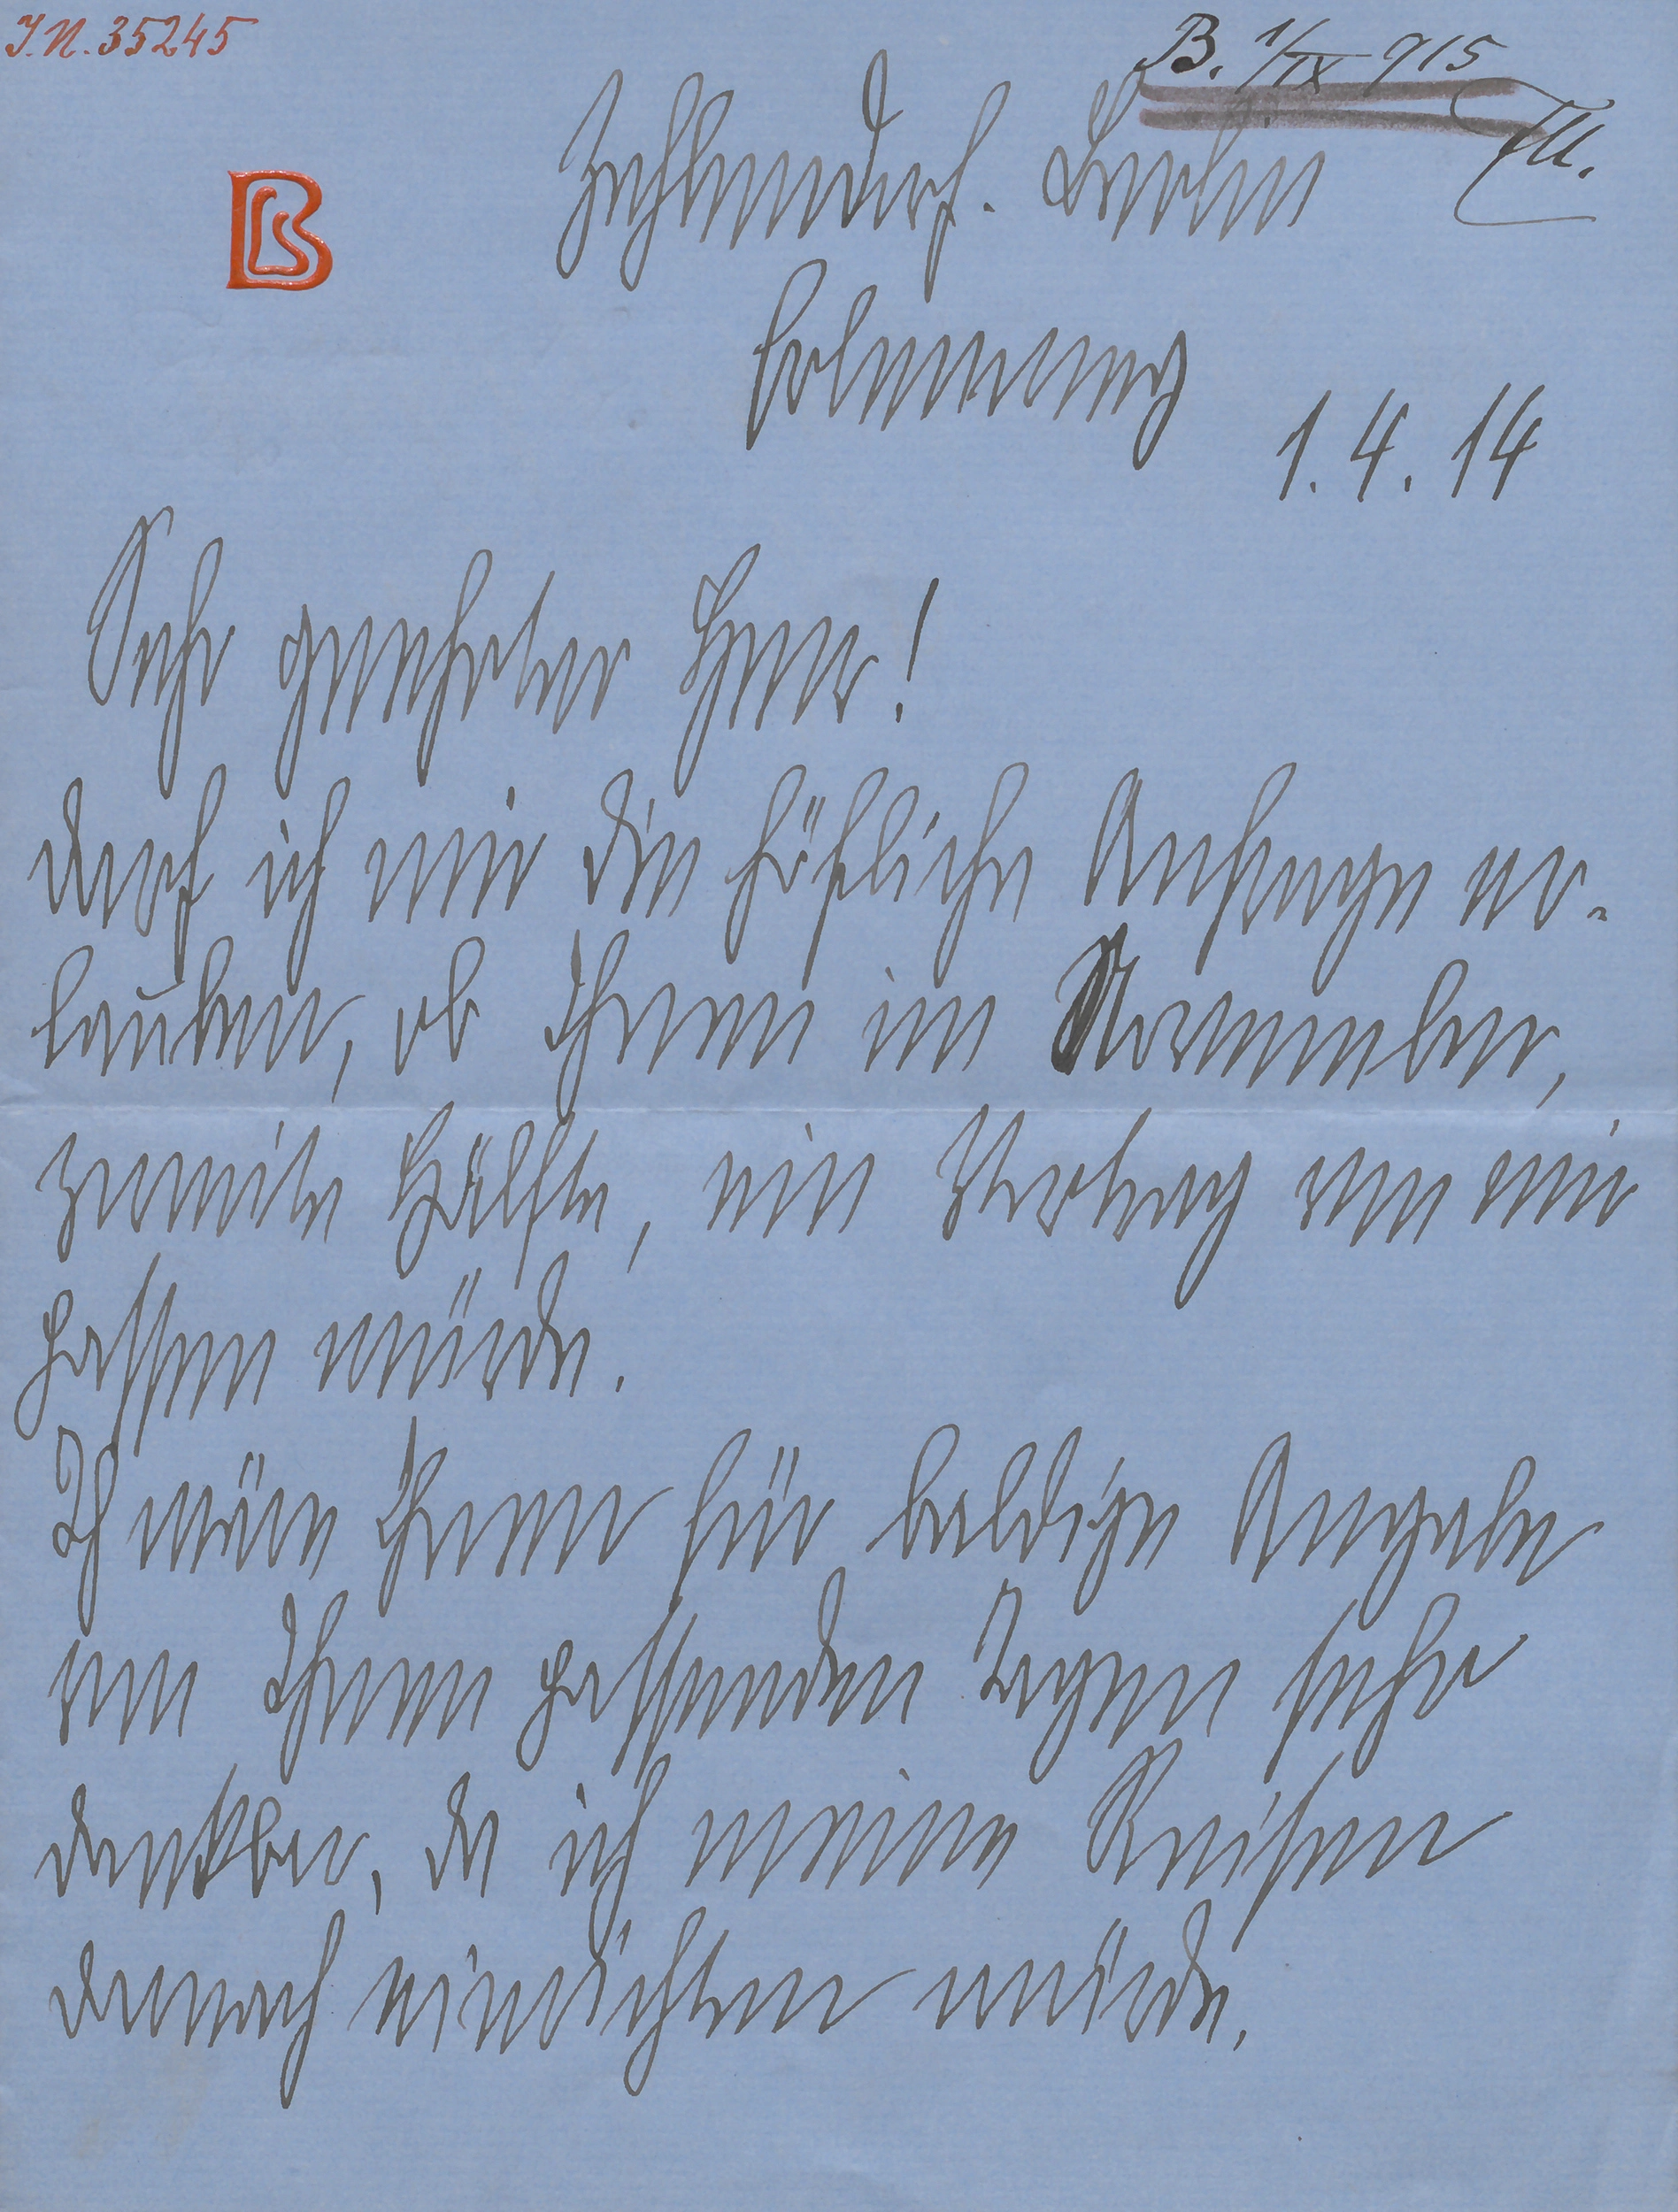 I.N. 35245
B. 1/IX 915
Zehlendorf. Berlin
1. 4. 14
Sehr geehrter Herr!
darf ich mir die höfliche Anfrage er-
lauben, ob Ihnen im November,
zweite Hälfte, ein Vortrag von mir
passen würde.
Ich wäre Ihnen für baldige Angabe
von Ihnen passenden Tagen sehr
dankbar, da ich meine Reisen
danach einrichten würde.